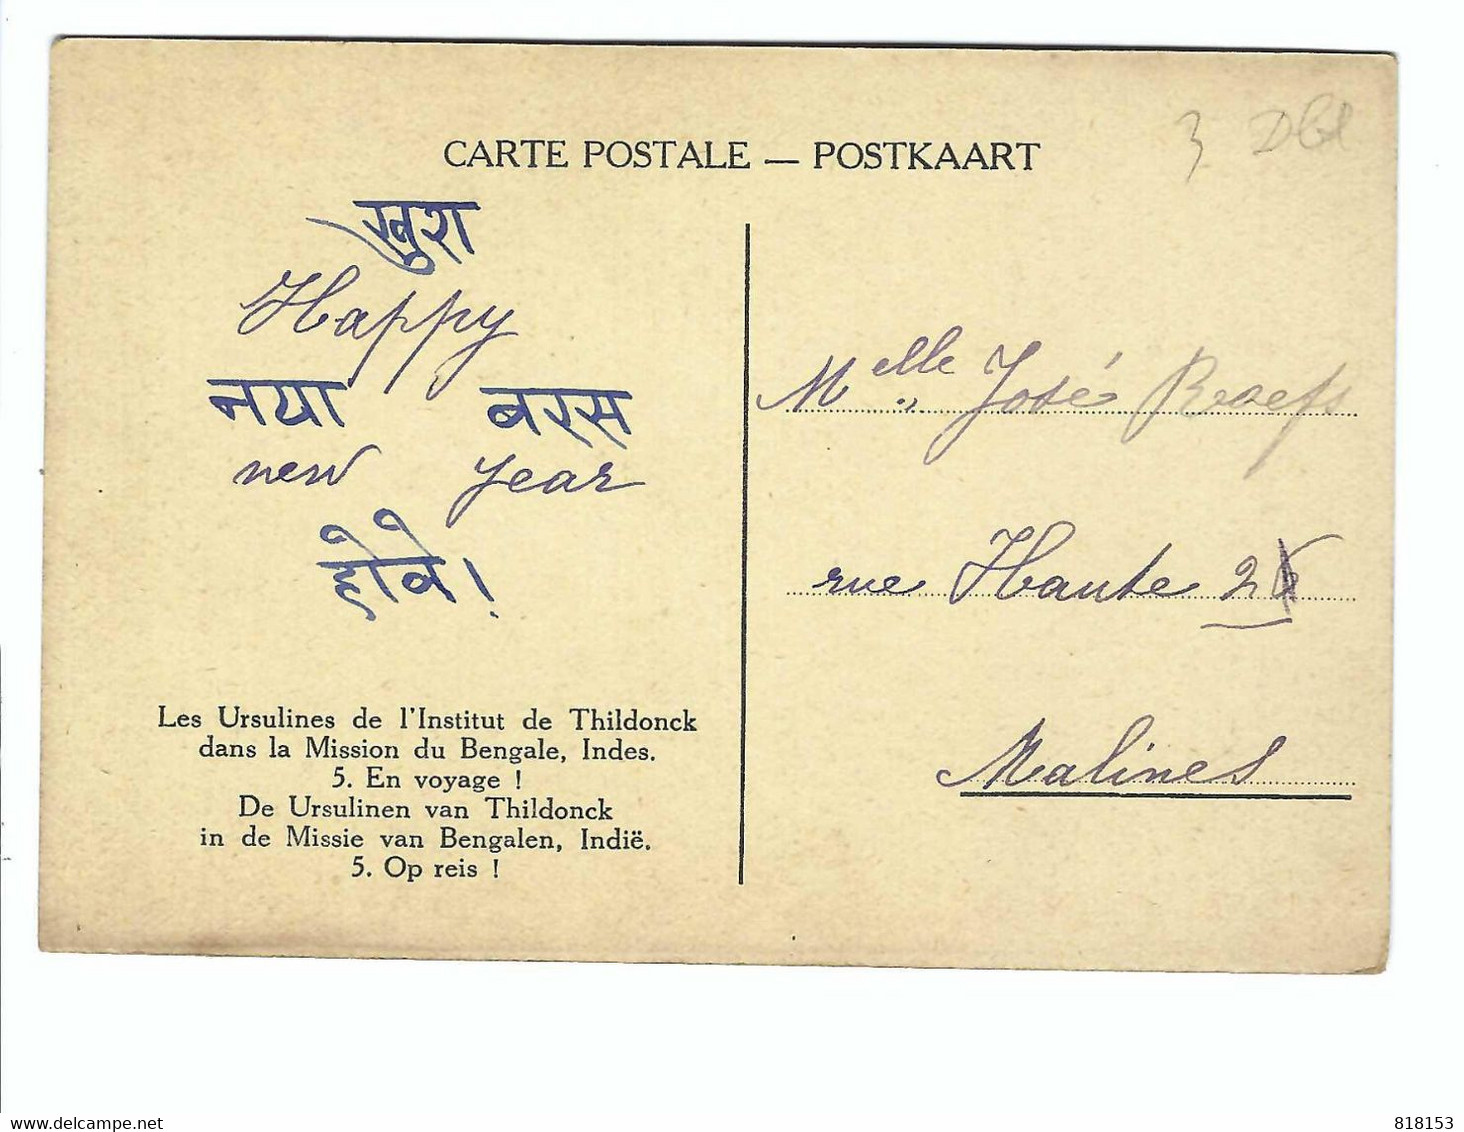 CARTE POSTALE — POSTKAART
खुश
Happy
नया बरस
new year
होवे!
Les Ursulines de l'Institut de Thildonck
dans la Mission du Bengale, Indes.
5. En voyage !
De Ursulinen van Thildonck
in de Missie van Bengalen, Indië.
5. Op reis !
Melle José
rue Haute
Malines
delcampe.net
818153